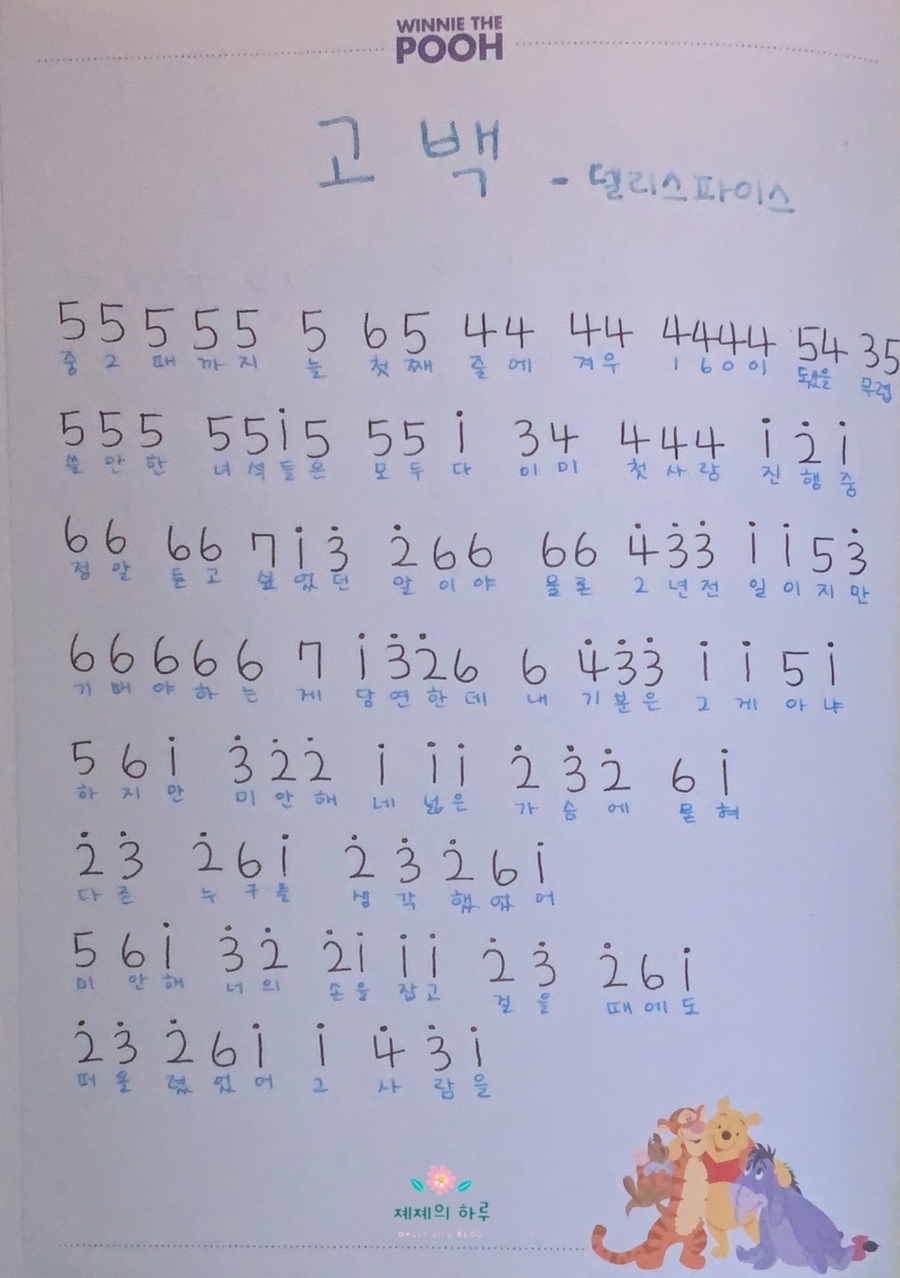 WINNIE THE
POOH
고백 - 델리스파이스
5 5 5 5 5 5 6 5 4 4 4 4 4 4 4 4 5 4 3 5
중 2 때 까 지 늘 첫 째 줄 에 겨 우 1 6 0 이 됐 을 무 렵
5 5 5 5 5 i 5 5 5 i 3 4 4 4 4 i 2̇ i
쓸 만 한 녀 석 들 은 모 두 다 이 미 첫 사 랑 진 행 중
6 6 6 6 7 i 3̇ 2̇ 6 6 6 6 4̇ 3̇ 3̇ i i 5 3̇
정 말 듣 고 싶 었 던 말 이 야 물 론 2 년 전 일 이 지 만
6 6 6 6 6 7 i 3̇ 2̇ 6 6 4̇ 3̇ 3̇ i i 5 i
기 뻐 야 하 는 게 당 연 한 데 내 기 분 은 그 게 아 냐
5 6 i 3̇ 2̇ 2̇ i i i 2̇ 3̇ 2̇ 6 i
하 지 만 미 안 해 네 넓 은 가 슴 에 묻 혀
2̇ 3̇ 2̇ 6 i 2̇ 3̇ 2̇ 6 i
다 른 누 구 를 생 각 했 었 어
5 6 i 3̇ 2̇ 2̇ i i i 2̇ 3̇ 2̇ 6 i
미 안 해 너 의 손 을 잡 고 걸 을 때 에 도
2̇ 3̇ 2̇ 6 i i 4̇ 3̇ i
떠 올 렸 었 어 그 사 람 을
제제의 하루
DAILY LIFE BLOG